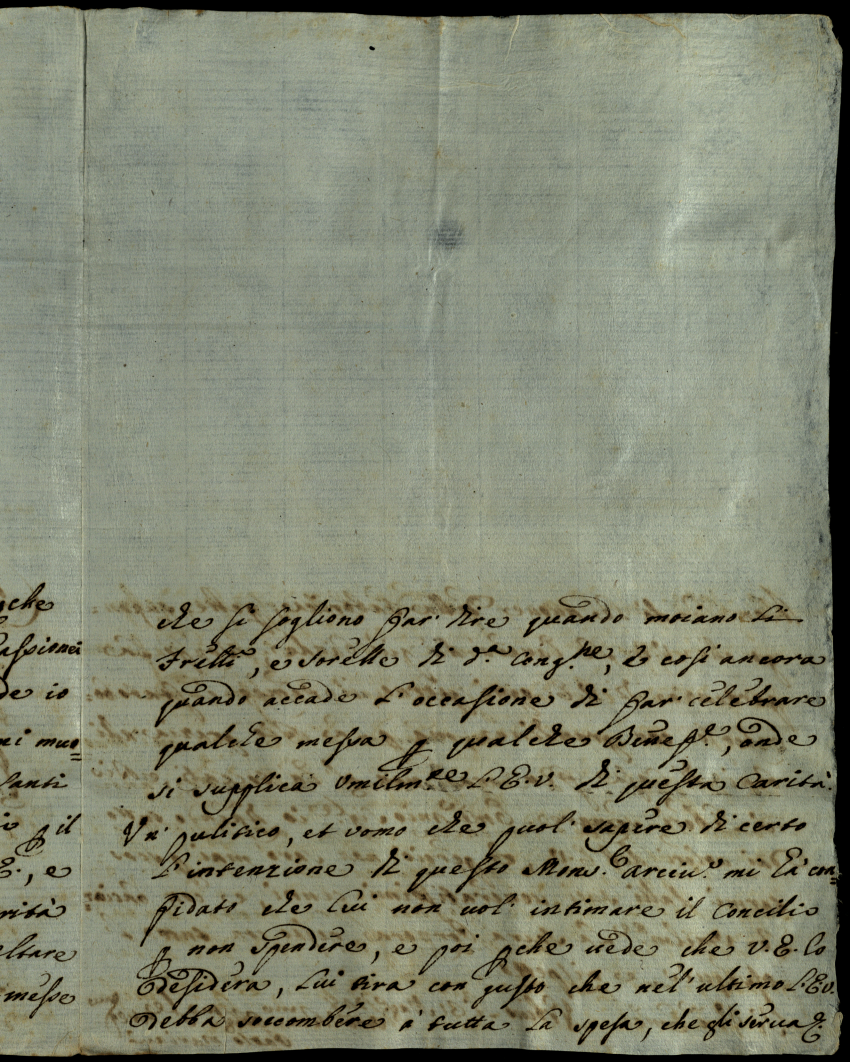 che
passionei
de io
ni muo=
Santi
p il
E., e
rità
eltare
messe
che si sogliono far' dire quando moiano li
Frелli, e sorelle di d.ª Cong.ne, e così ancora
quando accade l'occasione di far' celebrare
qualche messa p qualche Benef.e, onde
si supplica umilm.te l'E.V. di questa Carità.
Un' pulitico, et uomo che puol' sapere di certo
l'intenzione di questo Mons.r Arciv.o mi hà con=
fidato che lui non uol' intimare il Concilio
p non spendere, e poi pche uede che V.E. lo
desidera, lui tira con gusto che nel' ultimo l'E.V.
debba soccombere à tutta la spesa, che gli serua